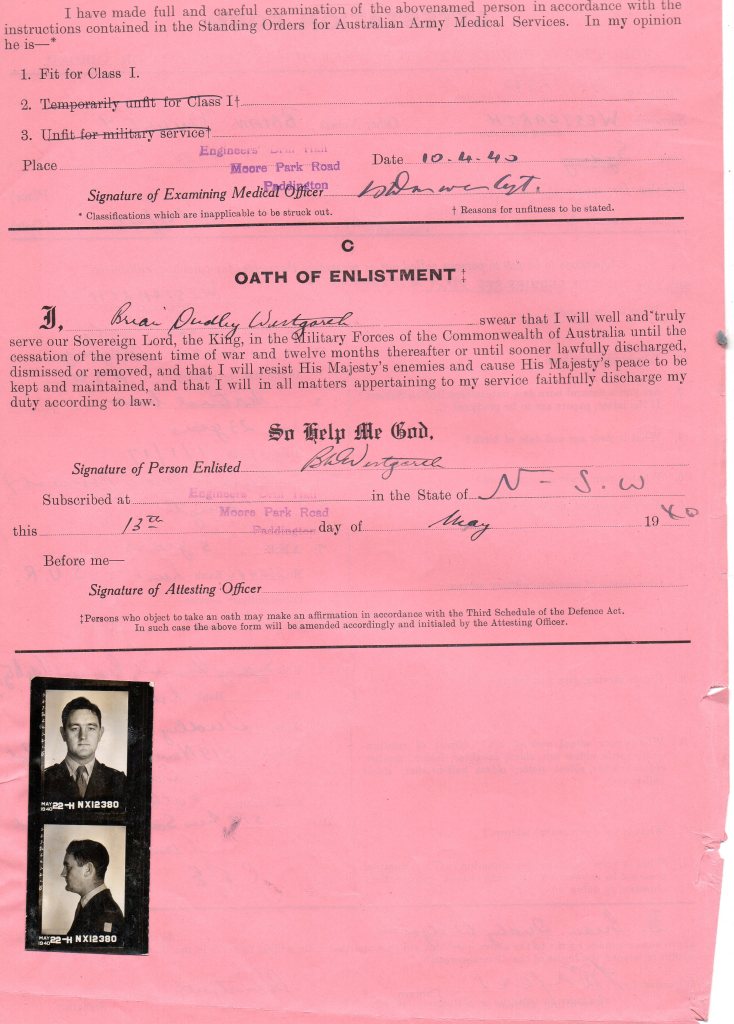 I have made full and careful examination of the abovenamed person in accordance with the
instructions contained in the Standing Orders for Australian Army Medical Services. In my opinion
he is—*
1. Fit for Class I.
2. Temporarily unfit for Class I†
3. Unfit for military service†
Engineers' Drill Hall
Place Moore Park Road Date 10.4.40
Paddington
Signature of Examining Medical Officer Capt.
* Classifications which are inapplicable to be struck out. † Reasons for unfitness to be stated.
C
OATH OF ENLISTMENT ‡
I, Brian Dudley Westgarth swear that I will well and truly
serve our Sovereign Lord, the King, in the Military Forces of the Commonwealth of Australia until the
cessation of the present time of war and twelve months thereafter or until sooner lawfully discharged,
dismissed or removed, and that I will resist His Majesty's enemies and cause His Majesty's peace to be
kept and maintained, and that I will in all matters appertaining to my service faithfully discharge my
duty according to law.
So Help Me God.
Signature of Person Enlisted BDWestgarth
Engineers' Drill Hall
Subscribed at Moore Park Road in the State of N-S.W
Paddington
this 13th day of May 1940
Before me—
Signature of Attesting Officer
‡Persons who object to take an oath may make an affirmation in accordance with the Third Schedule of the Defence Act.
In such case the above form will be amended accordingly and initialed by the Attesting Officer.
MAY 1940 22-H NX12380
MAY 1940 22-H NX12380